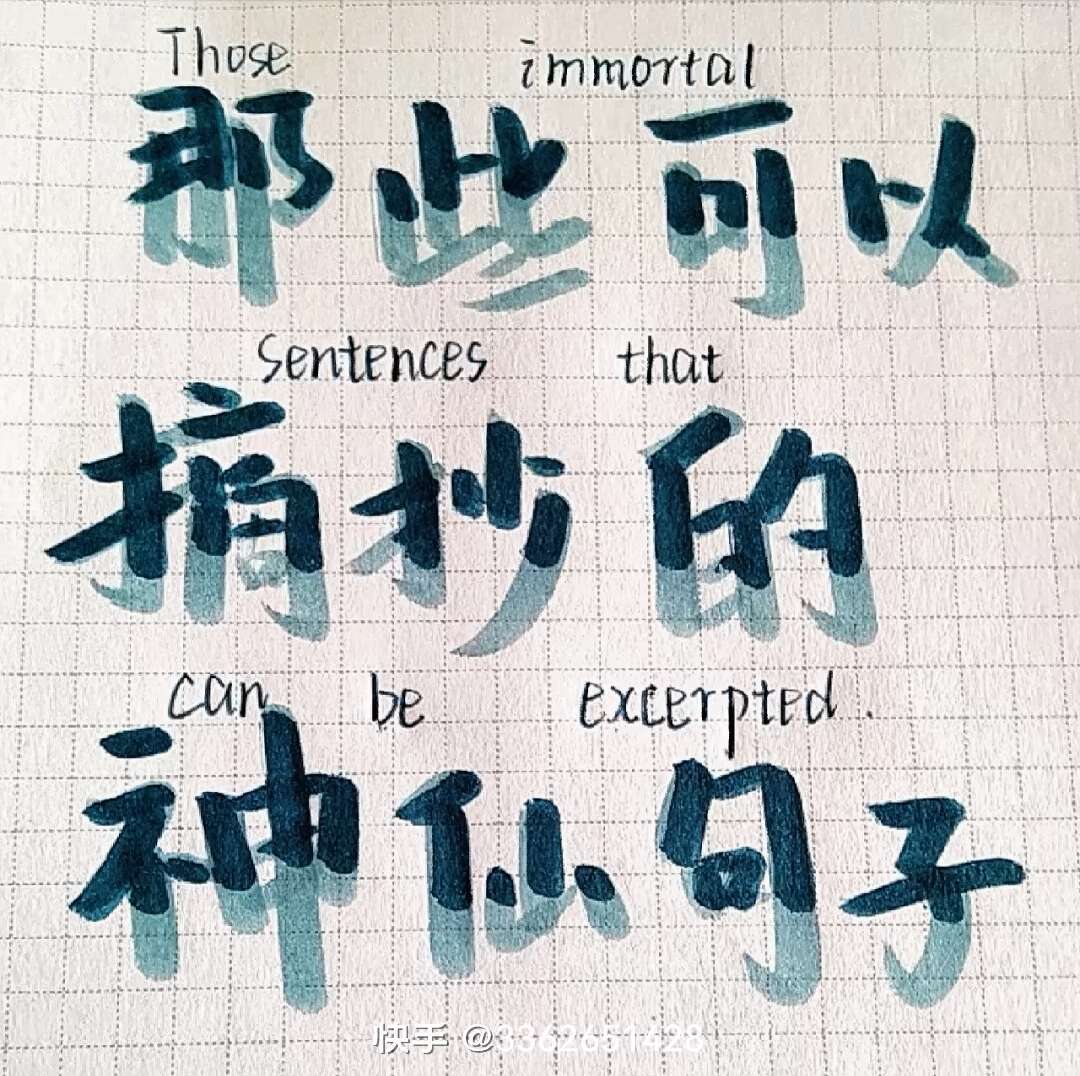 Those immortal
那些可以
sentences that
摘抄的
can be excerpted.
神仙句子
快手 @3362651428